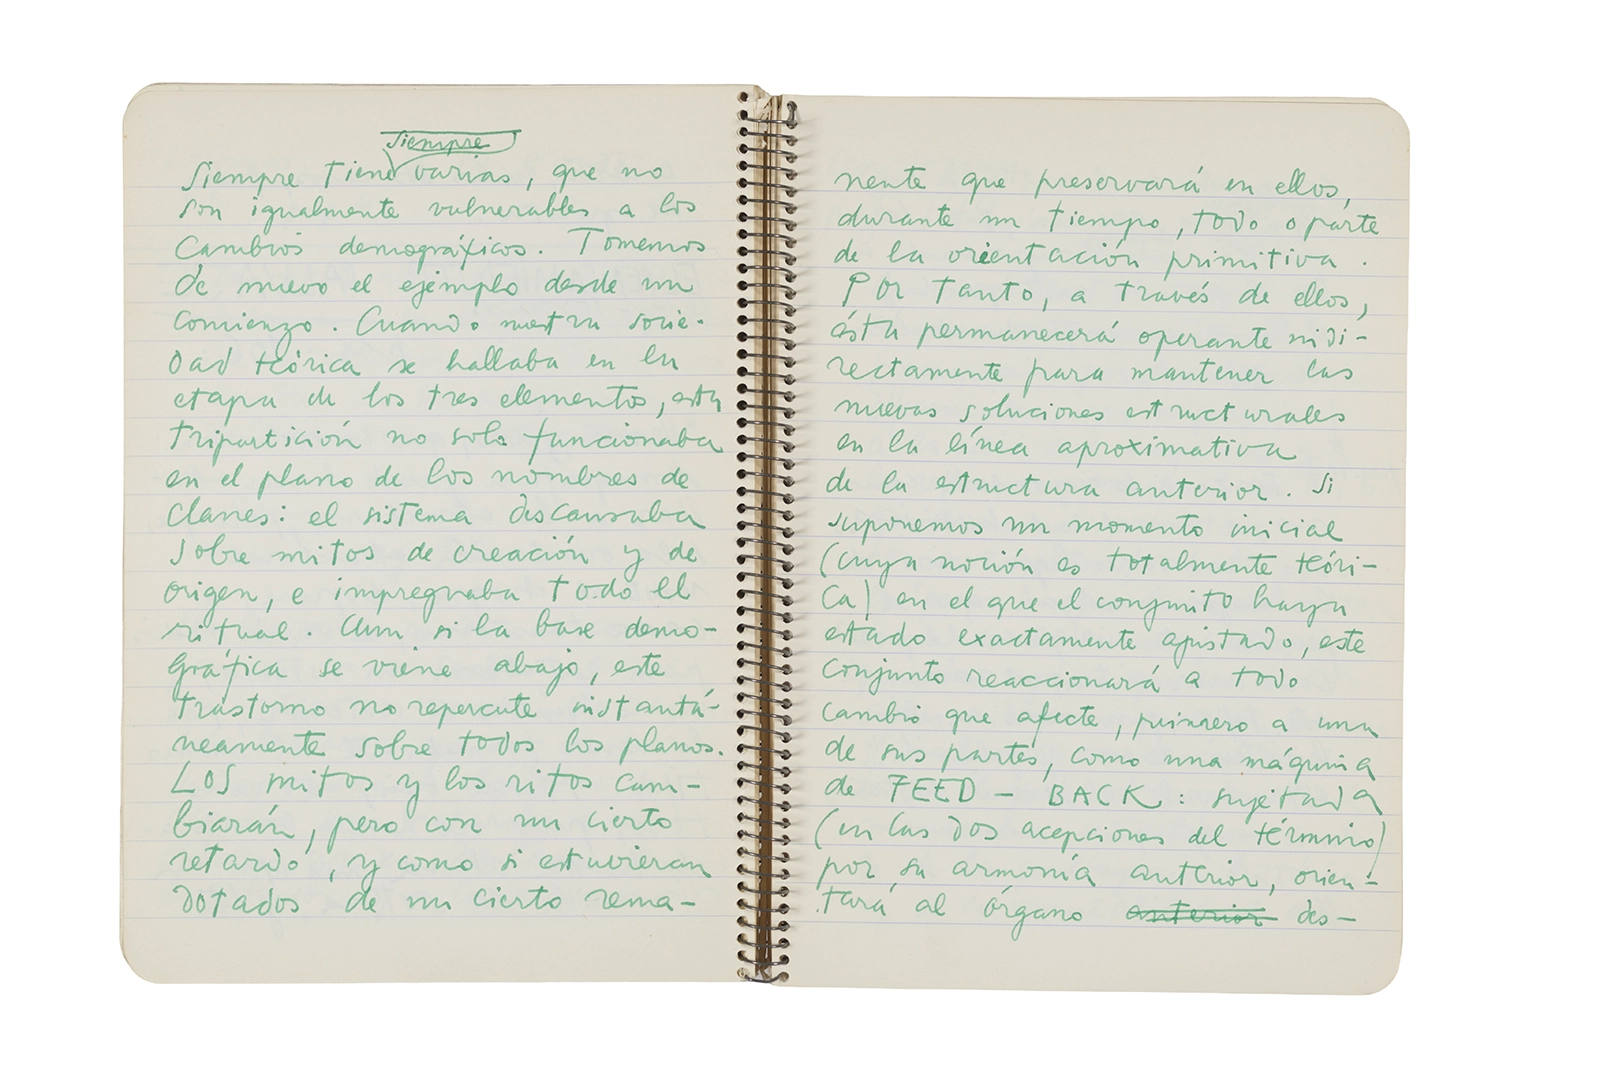 siempre
siempre tiene varias, que no
son igualmente vulnerables a los
cambios demográficos. Tomemos
de nuevo el ejemplo desde un
comienzo. Cuando nuestra socie-
dad teórica se hallaba en la
etapa de los tres elementos, esta
tripartición no solo funcionaba
en el plano de los nombres de
clanes: el sistema descansaba
sobre mitos de creación y de
origen, e impregnaba todo el
ritual. Aun si la base demo-
gráfica se viene abajo, este
trastorno no repercute instantá-
neamente sobre todos los planos.
Los mitos y los ritos cam-
biarán, pero con un cierto
retardo, y como si estuvieran
dotados de un cierto rema-
nente que preservará en ellos,
durante un tiempo, todo o parte
de la orientación primitiva.
Por tanto, a través de ellos,
ésta permanecerá operante indi-
rectamente para mantener las
nuevas soluciones estructurales
en la línea aproximativa
de la estructura anterior. Si
suponemos un momento inicial
(cuya noción es totalmente teóri-
ca) en el que el conjunto haya
estado exactamente ajustado, este
conjunto reaccionará a todo
cambio que afecte, primero a una
de sus partes, como una máquina
de FEED - BACK: sujetada
(en las dos acepciones del término)
por su armonía anterior, orien-
tará al órgano anterior des-